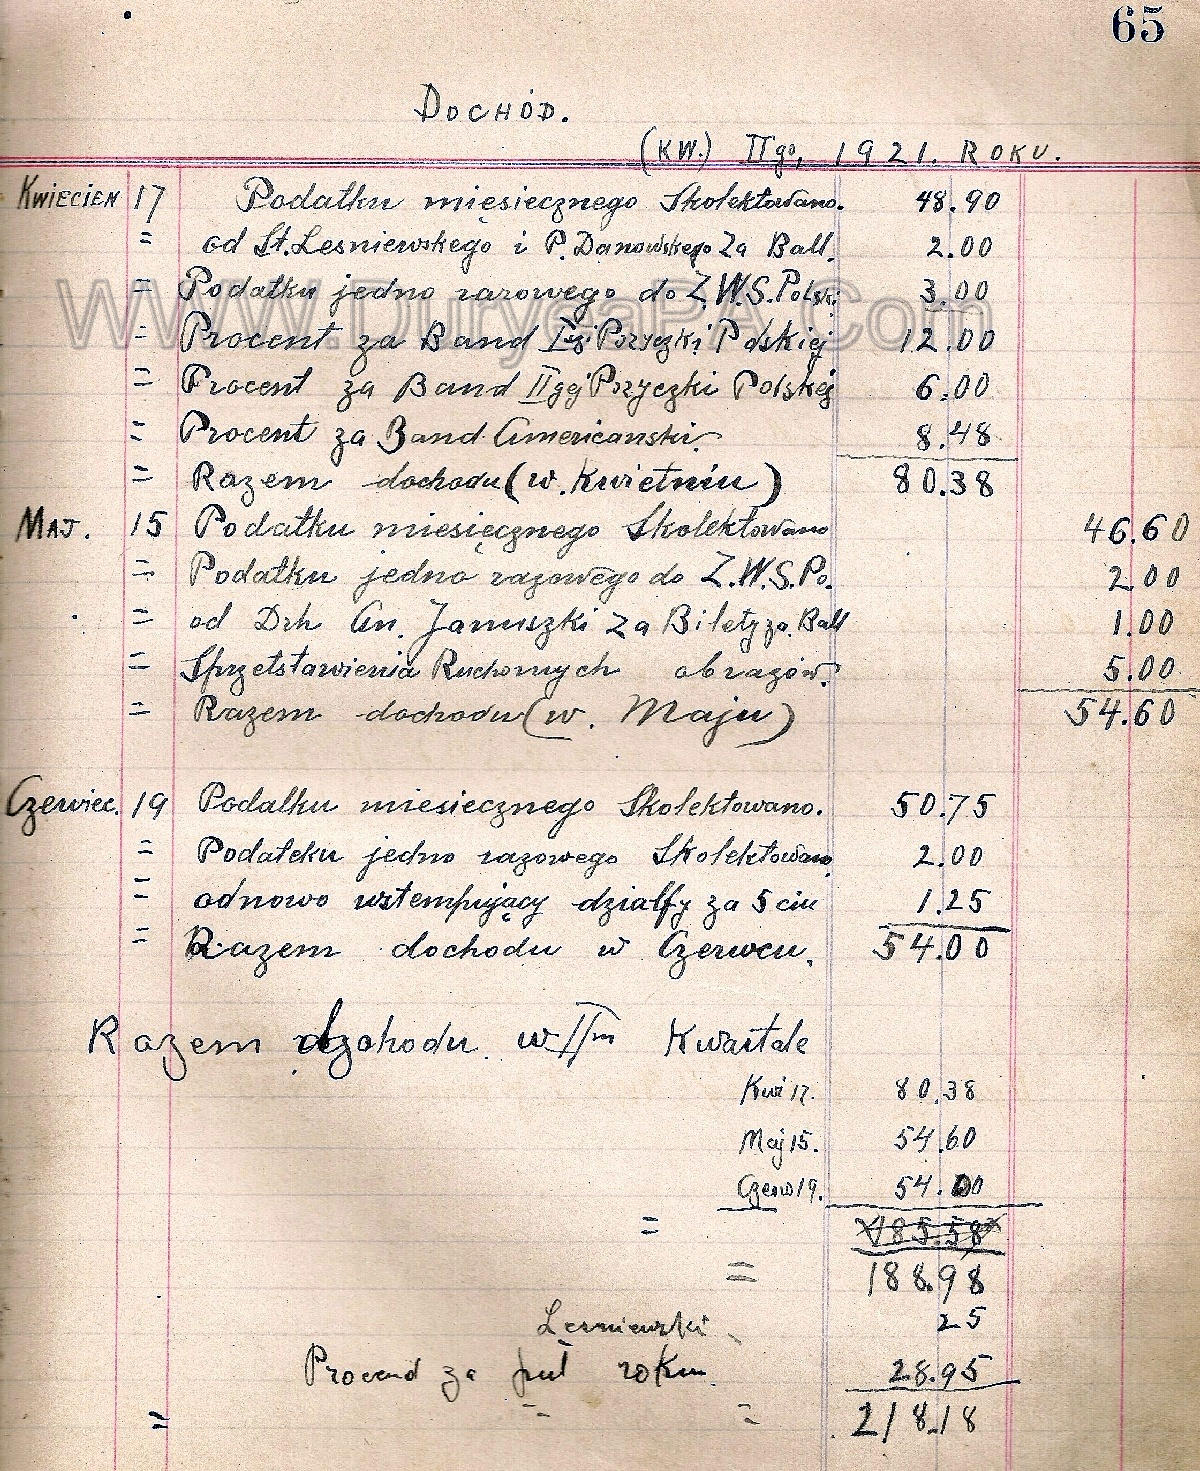 65
DOCHÓD.
(KW.) IIgo, 1921. ROKU.
KWIECIEN 17 Podatku mięsiecznego Skolektowano. 48.90
= od St. Lesniewskego i P. Danowskego Za Ball. 2.00
= Podatku jedno razowego do Z.W.S. Polski 3.00
= Procent za Band Iszj Pozyczki Polskiej 12.00
= Procent za Band IIgej Przyczki Polskej 6.00
= Procent za Band Americanski. 8.48
= Razem dochodu (w. Kwietniu) 80.38
MAJ. 15 Podatku miesięcznego Skolektowano 46.60
= Podatku jedno razowego do Z.W.S.Po. 2.00
= od Drh An. Januszki Za Bilety za. Ball 1.00
= Sprzetstawienia Ruchomych obrazów. 5.00
= Razem dochodu (w. Maju) 54.60
Czerwiec. 19 Podatku miesiecznego Skolektowano. 50.75
= Podateku jedno razowego Skolektowano 2.00
= odnowo wstempujący dzialfy za 5 ciu 1.25
= Razem dochodu w Czerwcu. 54.00
Razem dochodu w IIm Kwartale
Kwi 17. 80.38
Maj 15. 54.60
Czerw 19. 54.00
= 185.58
= 188.98
Lesniewski 25
Procend za puł roku 28.95
= 218.18
WWW.DuryeaPA.Com